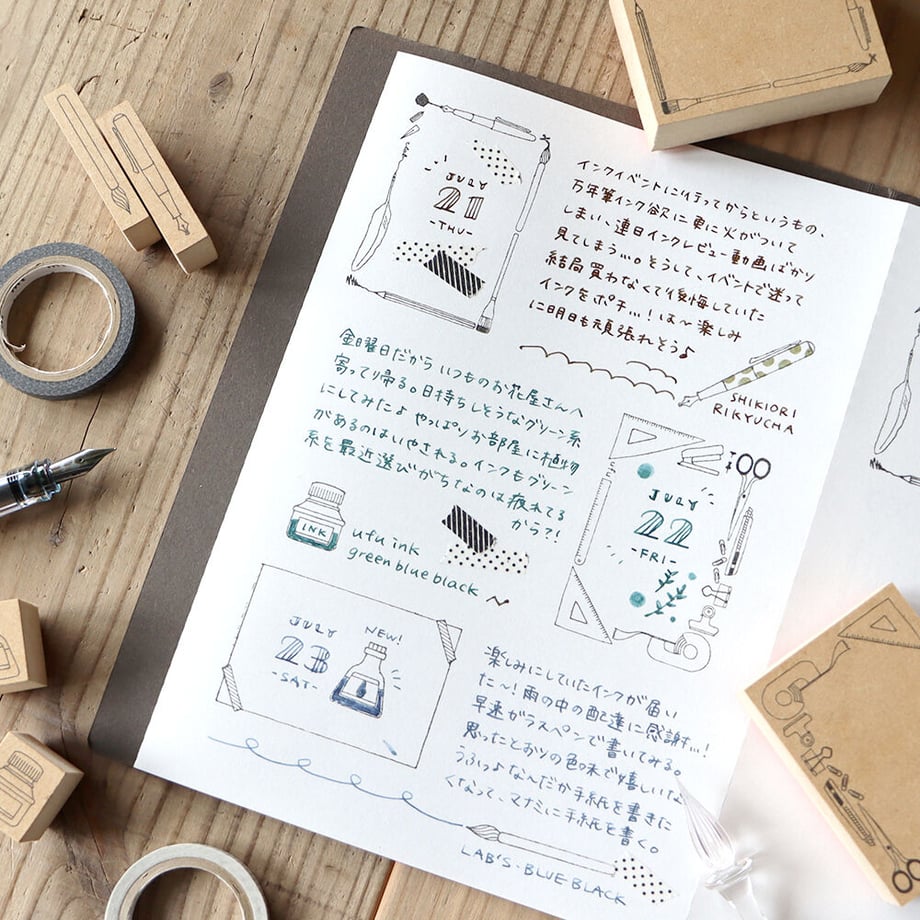 JULY
21
-THU-
インクイベントに行ってからというもの、
万年筆インク欲に更に火がついて
しまい、連日インクレビュー動画ばかり
見てしまう…。そうして、イベントで迷って
結局買わなくて後悔していた
インクをポチ…！は〜楽しみ
に明日も頑張れそう♪
SHIKIORI
RIKYUCHA
金曜日だから いつものお花屋さんへ
寄って帰る。日持ちしそうなグリーン系
にしてみたよ やっぱりお部屋に植物
があるのはいやされる。インクもグリーン
系を最近選びがちなのは疲れてる
から？！
INK
ufu ink
green blue black
JULY
22
-FRI-
JULY
23
-SAT-
NEW!
楽しみにしていたインクが届い
た〜！雨の中の配達に感謝…！
早速ガラスペンで書いてみる。
思ったとおりの色味で嬉しいな
うふっ♪なんだか手紙を書きた
くなって、マナミに手紙を書く。
LAB'S・BLUE・BLACK